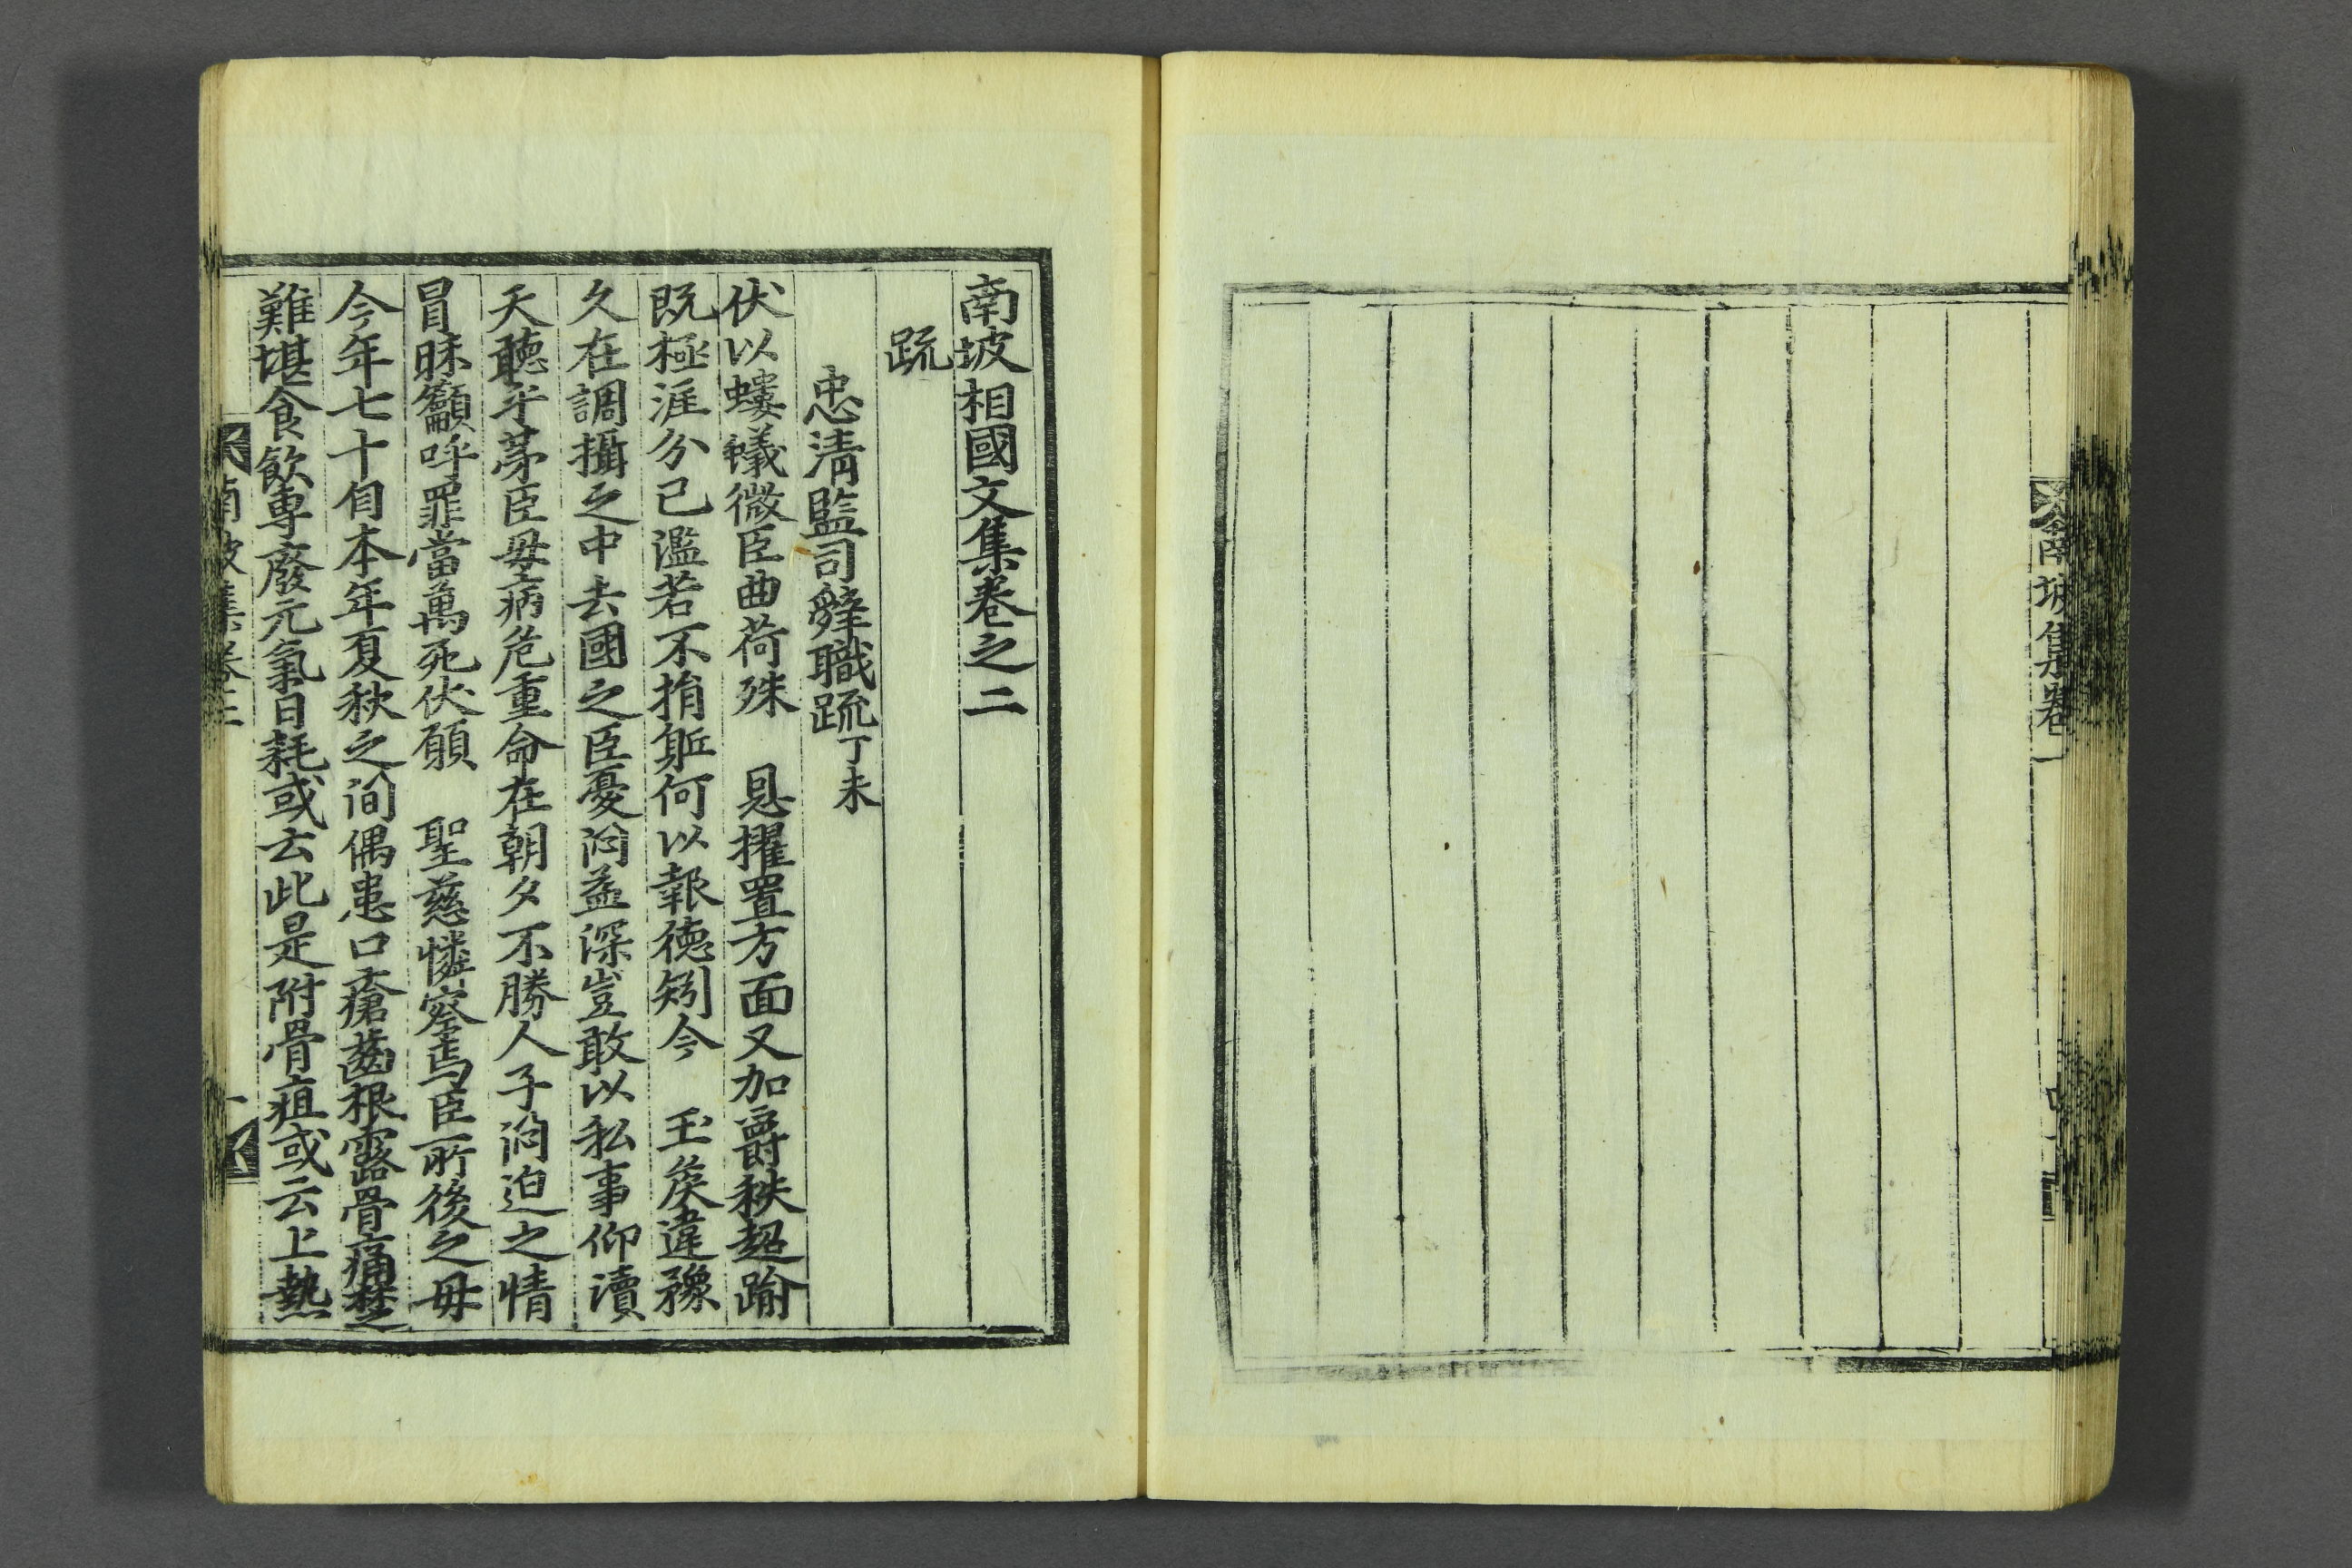 南坡相國文集卷之二
疏
忠淸監司辭職疏丁未
伏以螻蟻微臣曲荷殊 恩擢置方面又加爵秩超踰
旣極涯分已濫若不捐軀何以報德矧今 玉候違豫
久在調攝之中去國之臣憂悶益深豈敢以私事仰瀆
天聽乎第臣母病危重命在朝夕不勝人子悶迫之情
冒昧籲呼罪當萬死伏願 聖慈憐察焉臣所後之母
今年七十自本年夏秋之間偶患口瘡齒根露骨痛楚
難堪食飮專廢元氣日耗或云此是附骨疽或云上熱
南坡集卷二
南坡集卷一